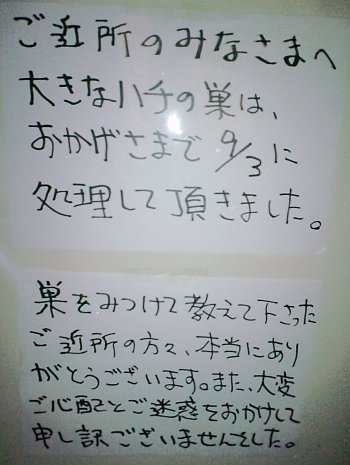 ご近所のみなさまへ
大きなハチの巣は、
おかげさまで9/3に
処理して頂きました。
巣をみつけて教えて下さった
ご近所の方々、本当にあり
がとうございます。また、大変
ご心配とご迷惑をおかけして
申し訳ございませんでした。